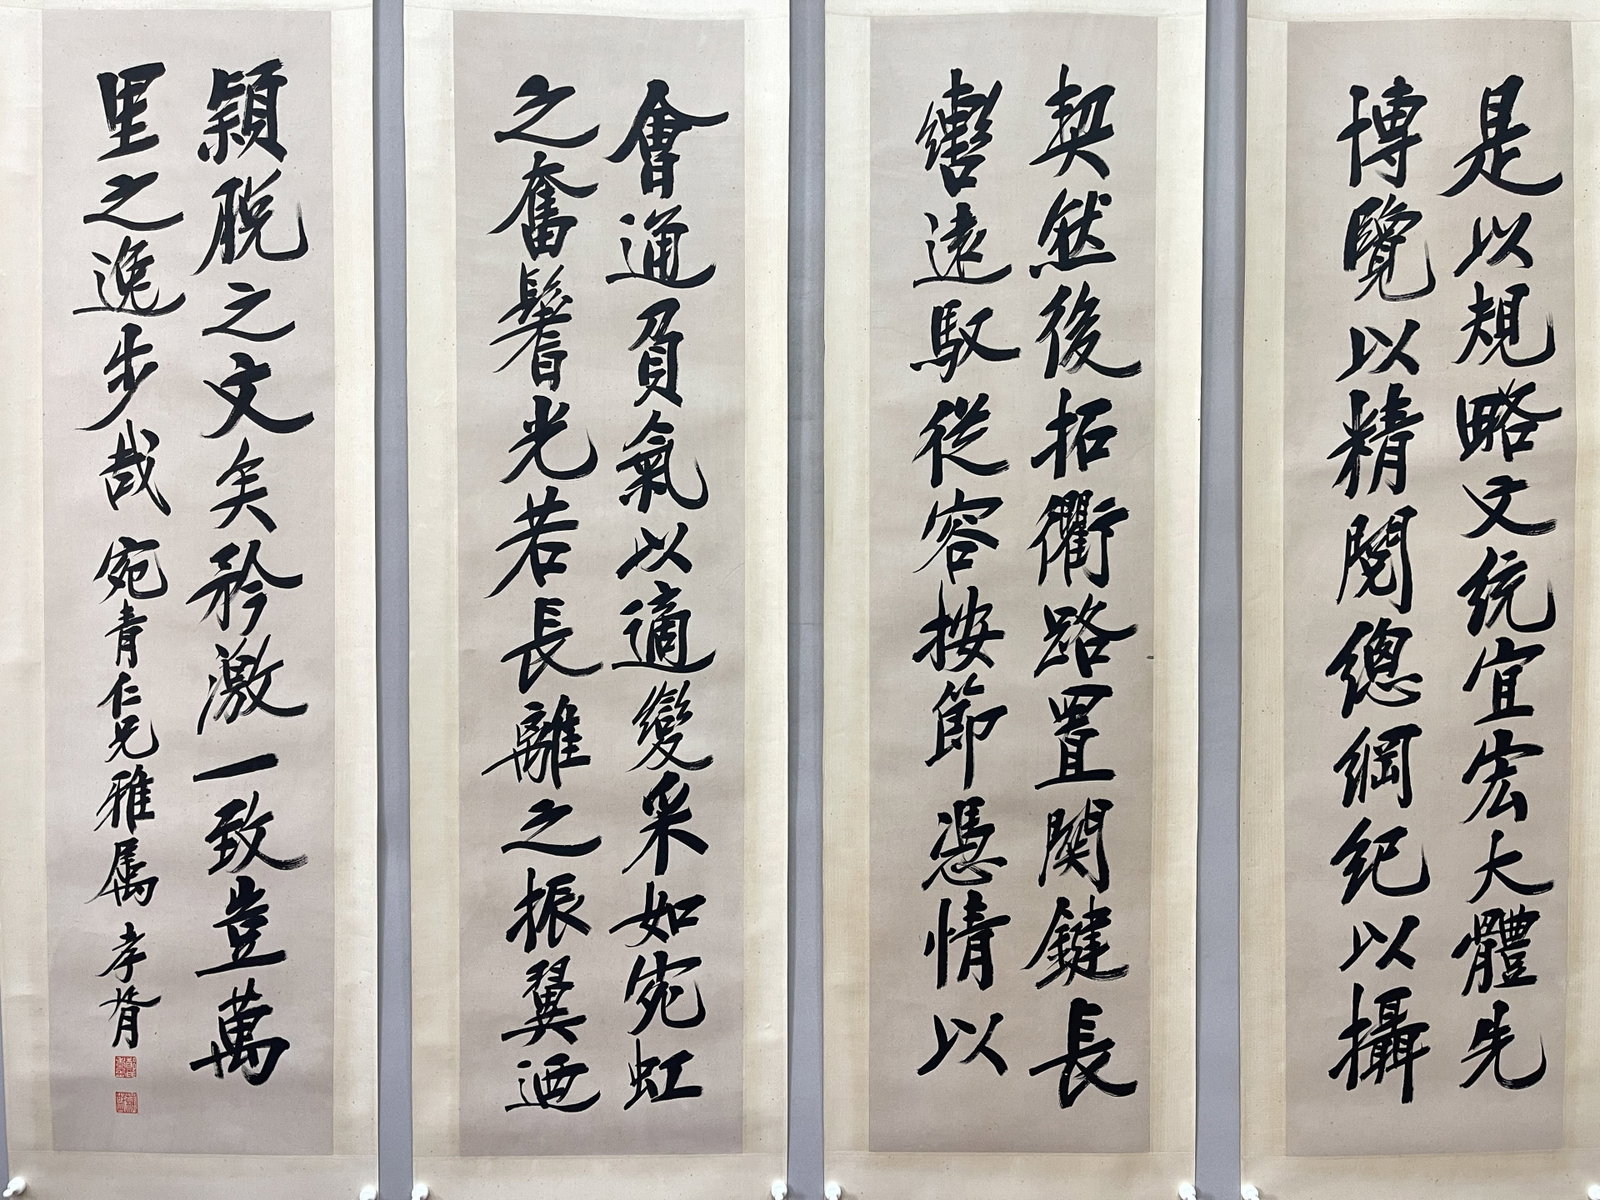 是以規略文統宜宏大體先
博覽以精閱總綱紀以攝
契然後拓衢路置關鍵長
轡遠馭從容按節憑情以
會通負氣以適變采如宛虹
之奮鬐光若長離之振翼迺
穎脫之文矣矜激一致豈萬
里之逸步哉
宛青仁兄雅屬
孝胥